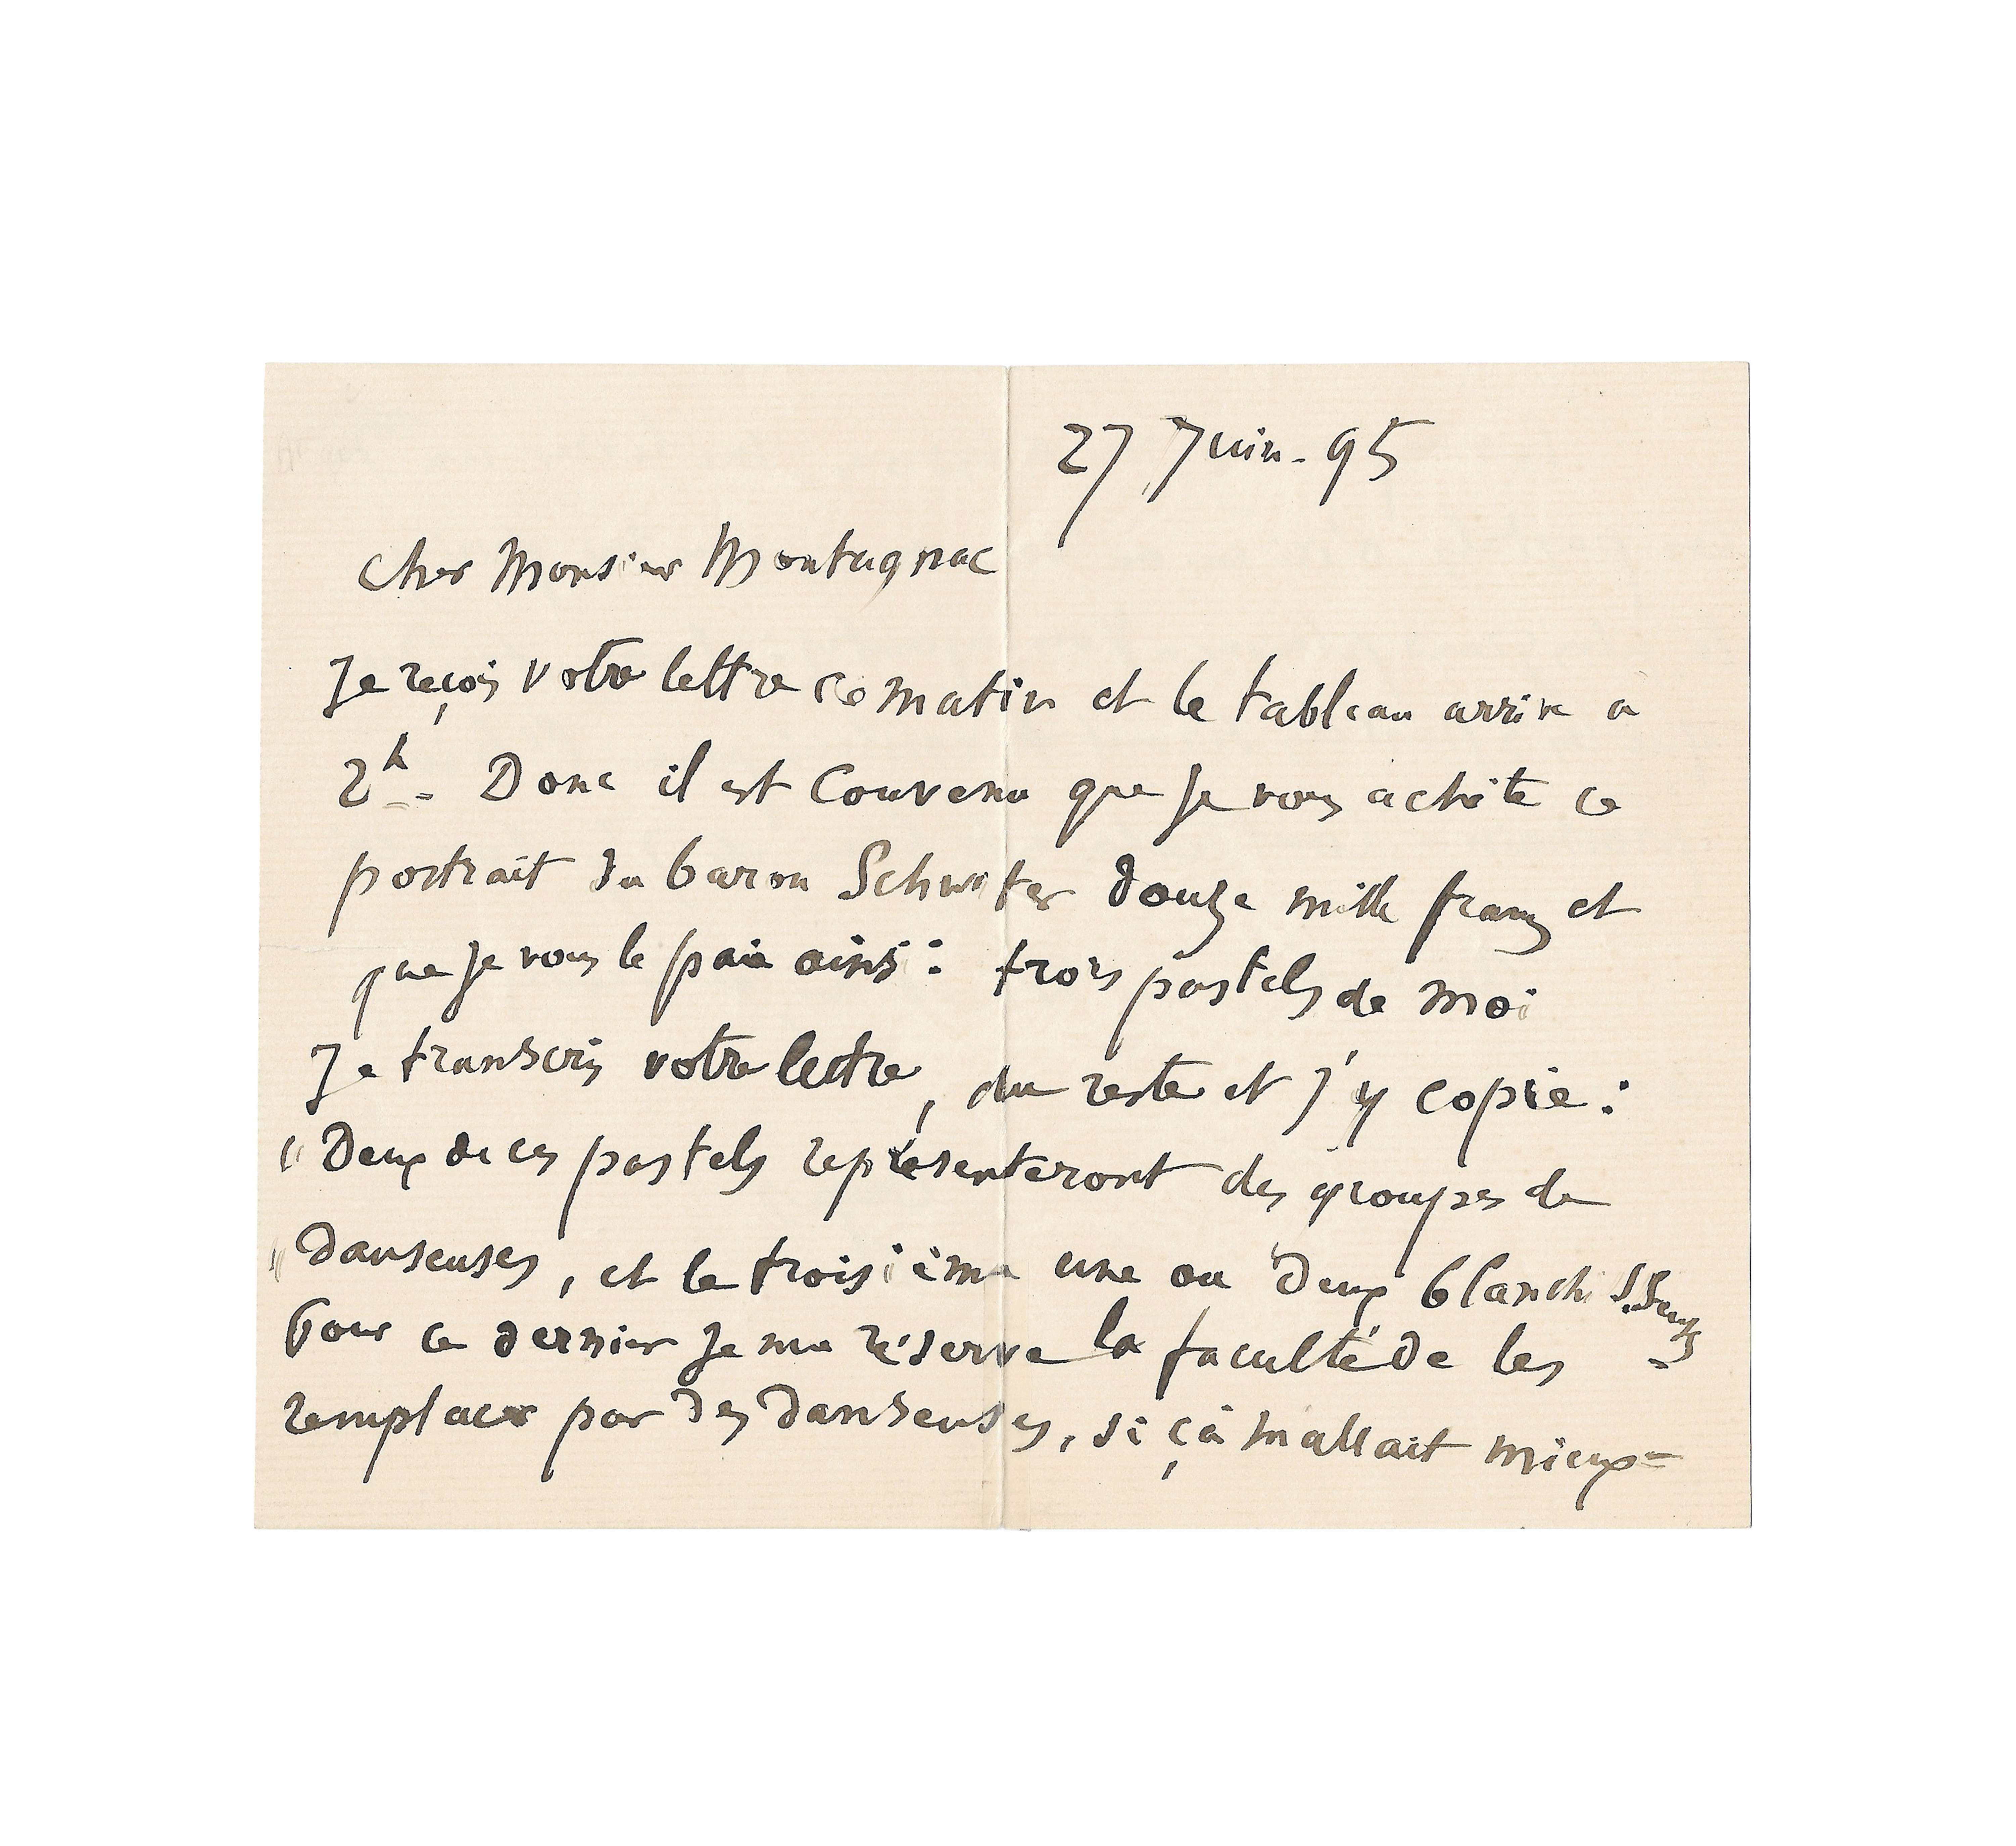 27 Juin - 95
Cher Monsieur Montagnac
Je reçois votre lettre ce matin et le tableau arrive a
2h - Donc il est convenu que je vous achète ce
portrait du baron Schwiter douze mille francs et
que je vous le paie ainsi : trois pastels de moi
Je transcris votre lettre, du reste et j'y copie :
" Deux de ces pastels représenteront des groupes de
" danseuses, et le troisième une ou deux blanchisseuses -
Pour ce dernier je me réserve la faculté de les
remplacer par des danseuses, si çà m'allait mieux =